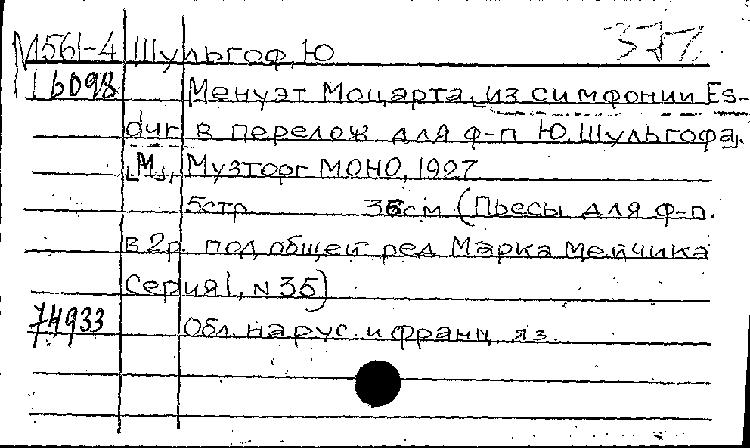 М561-4 Шульгоф, Ю
16098 Менуэт Моцарта, из симфонии Es-
dur в перелож для ф-п Ю. Шульгофа,
[М], Музторг МОНО, 1927
5стр 36см (Пьесы для ф-п.
в 2р. под общей ред Марка Мейчика
Серия I, N 35)
74933 Обл. на рус. и франц яз.